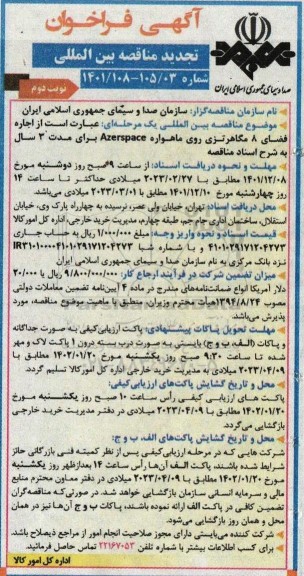 آگهی فراخوان
تجدید مناقصه بین المللی
شماره ۱۴۰۱/۱۰۸-۱۰۵/۰۳
نوبت دوم
صدا و سیمای جمهوری اسلامی ایران
نام سازمان مناقصه‌گزار: سازمان صدا و سیمای جمهوری اسلامی ایران
موضوع مناقصه بین المللی یک مرحله‌ای: عبارت است از اجاره
فضای ۸ مگاهرتزی روی ماهواره Azerspace برای مدت ۳ سال
به شرح اسناد مناقصه
مهلت و نحوه دریافت اسناد: از ساعت ۹ صبح روز دوشنبه مورخ
۱۴۰۱/۱۲/۰۸ مطابق با ۲۰۲۳/۰۲/۲۷ میلادی حداکثر تا ساعت ۱۴
روز چهارشنبه مورخ ۱۴۰۱/۱۲/۱۰ مطابق با ۲۰۲۳/۰۳/۰۱ میلادی می‌باشد.
محل دریافت اسناد: تهران، خیابان ولی عصر، نرسیده به چهارراه پارک وی، خیابان
استقلال، ساختمان اداری جام جم، طبقه چهارم، مدیریت خرید خارجی، اداره کل امور کالا
قیمت اسناد و نحوه واریز وجه: مبلغ ۱/۰۰۰/۰۰۰ ریال به حساب جاری
۴۱۰۱۰۲۹۱۷۱۲۰۴۲۷۳ و با شماره شبا
نزد بانک مرکزی به نام سازمان صدا و سیمای جمهوری اسلامی ایران
میزان تضمین شرکت در فرآیند ارجاع کار: ۹/۸۰۰/۰۰۰/۰۰۰ ریال یا ۲۰/۰۰۰
دلار آمریکا انواع ضمانت‌نامه‌های مندرج در ماده ۴ آیین‌نامه تضمین معاملات دولتی
مصوب ۱۳۹۴/۸/۲۴ هیأت محترم وزیران، منطبق با ماهیت موضوع مناقصه، مورد
پذیرش می‌باشد.
مهلت تحویل پاکات پیشنهادی: پاکت ارزیابی‌کیفی به صورت جداگانه
و پاکات (الف، ب و ج) بایستی به صورت درب بسته درون ۱ پاکت لاک و مهر
شده تا ساعت ۹:۳۰ صبح روز یکشنبه مورخ ۱۴۰۲/۰۱/۲۰ مطابق با
۲۰۲۳/۰۴/۰۹ میلادی به مدیریت خرید خارجی اداره کل امورکالا تسلیم گردد.
محل و تاریخ گشایش پاکت‌های ارزیابی‌کیفی:
پاکت های ارزیابی کیفی رأس ساعت ۱۰ صبح روز یکشنبه مورخ
۱۴۰۲/۰۱/۲۰ مطابق با ۲۰۲۳/۰۴/۰۹ میلادی در دفتر مدیریت خرید خارجی
بازگشایی می‌گردد.
محل و تاریخ گشایش پاکت‌های الف، ب و ج:
شرکت هایی که در مرحله ارزیابی‌کیفی پس از نظر کمیته فنی بازرگانی حائز
شرایط شده باشند، پاکت الف آن‌ها رأس ساعت ۱۴ بعدازظهر روز یکشنبه
مورخ ۱۴۰۲/۰۱/۲۰ مطابق با ۲۰۲۳/۰۴/۰۹ میلادی در دفتر معاون محترم منابع
مالی و سرمایه انسانی سازمان بازگشایی خواهد شد. در صورتی‌که مناقصه‌گران
تضمین کافی در پاکت الف ارائه نموده باشند، پاکات ب و ج آن‌ها نیز در همان
محل و همان روز بازگشایی می‌شود.
شرکت کننده می‌بایستی دارای مجوز صلاحیت انجام امور از مراجع ذیصلاح باشد.
برای کسب اطلاعات بیشتر با شماره تلفن ۲۲۱۶۷۰۵۳ تماس حاصل فرمائید.
اداره کل امور کالا